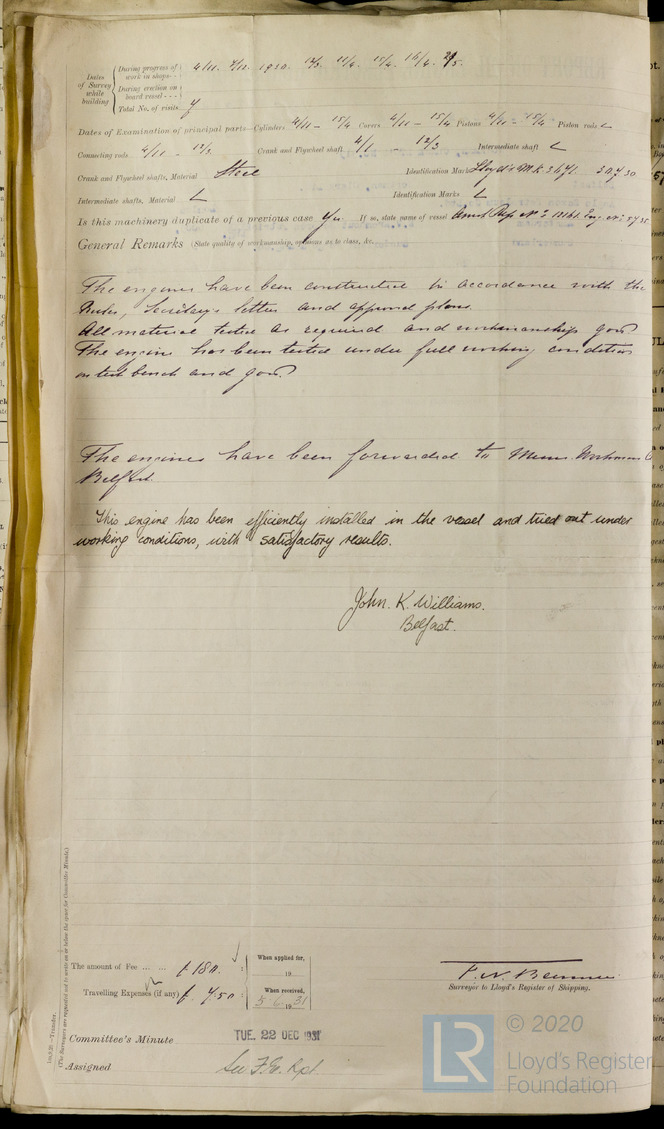 Dates of Survey while building
During progress of work in shops - - 4/11. 7/12. 1930. 12/3 11/4. 15/4. 16/4. 2/5.
During erection on board vessel - - -
Total No. of visits 7
Dates of Examination of principal parts—Cylinders 4/11 – 15/4 Covers 4/11 – 15/4 Pistons 4/11 – 15/4 Piston rods
Connecting rods 4/11 – 12/3 Crank and Flywheel shaft 4/1 – 12/3 Intermediate shaft
Crank and Flywheel shafts, Material Steel Identification Mark Lloyd's
Intermediate shafts, Material Identification Marks
Is this machinery duplicate of a previous case Yes. If so, state name of vessel
General Remarks (State quality of workmanship, opinions as to class, &c.
The engines have been constructed in accordance with the
Rules, Secretary's letters and approved plans.
All material tested as required and workmanship good
The engine has been tested under full working conditions
on test bench and good.
The engines have been forwarded to Messrs. Workman
Belfast.
This engine has been efficiently installed in the vessel and tried out under
working conditions, with satisfactory results.
John. K. Williams.
Belfast.
The amount of Fee ... ... £ 180. : When applied for, 19
Travelling Expenses (if any) £ 450 : When received, 5 6 19 31
Surveyor to Lloyd's Register of Shipping.
Committee's Minute TUE. 22 DEC 1931
Assigned See F.E. Rpt
(The Surveyors are requested not to write on or below the space for Committee's Minute.)
© 2020
LR Lloyd's Register
Foundation